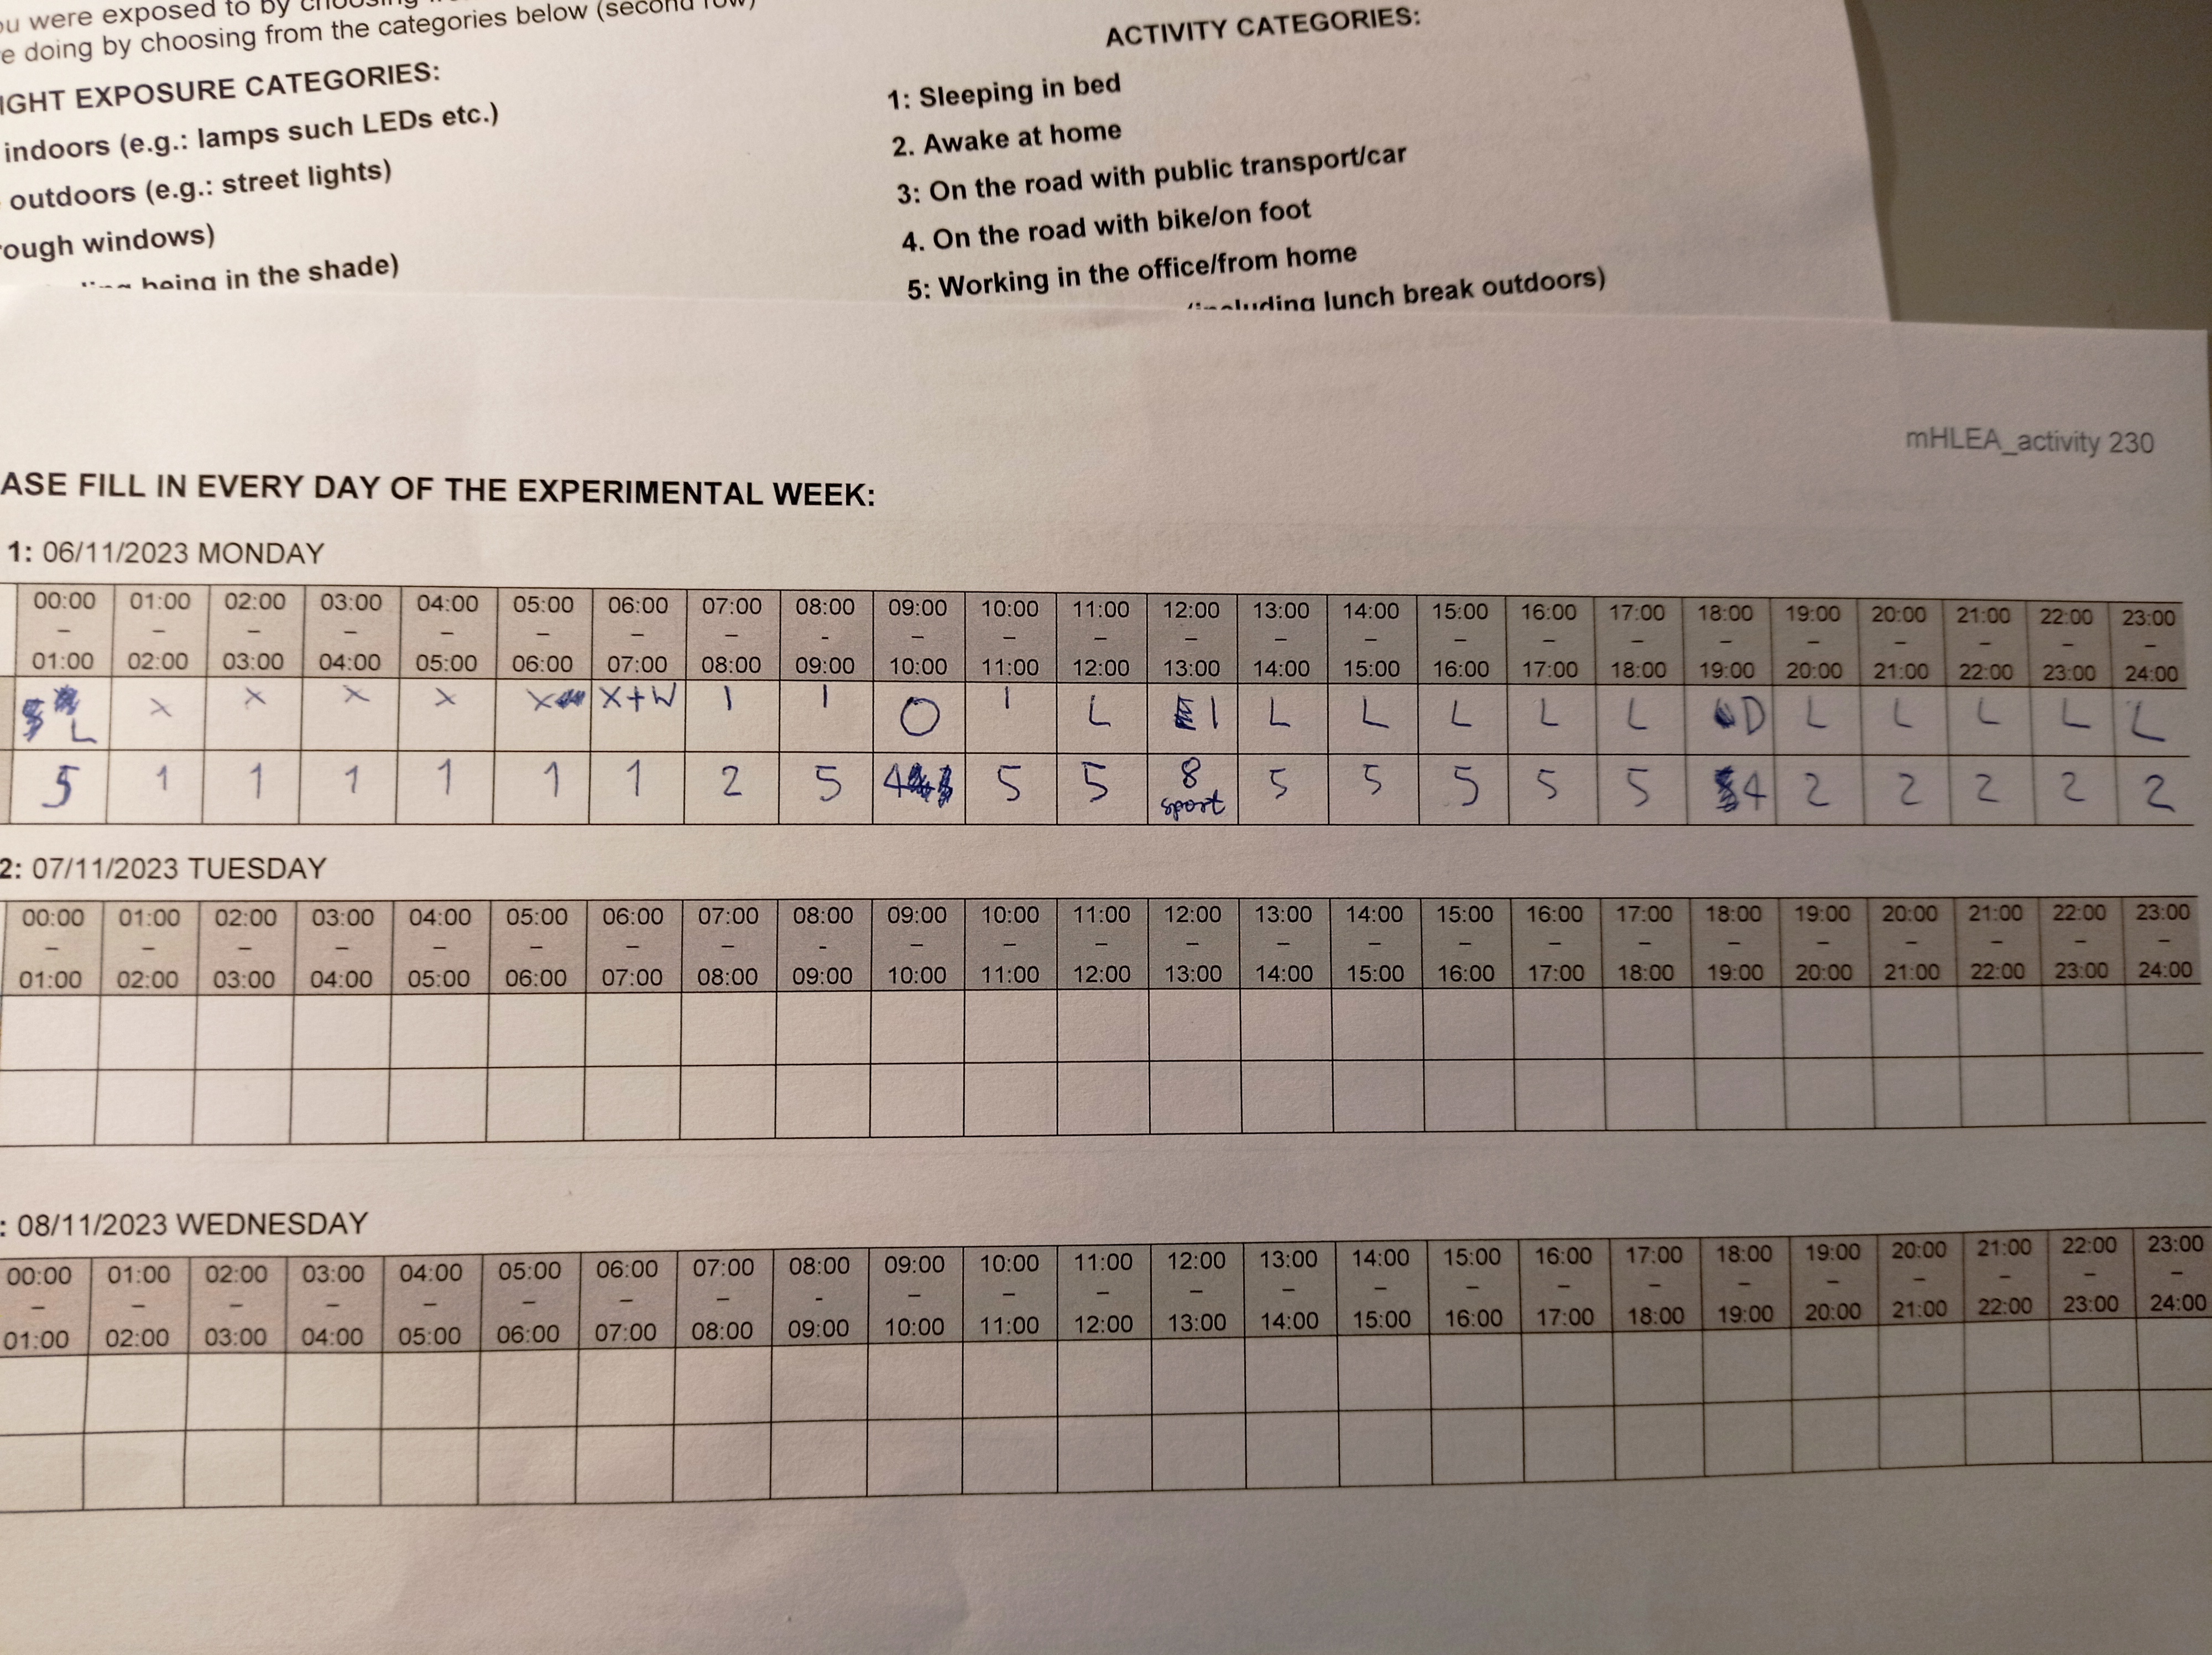 mHLEA_activity 230
ou were exposed to by
e doing by choosing from the categories below (second row)
IGHT EXPOSURE CATEGORIES:
indoors (e.g.: lamps such LEDs etc.)
outdoors (e.g.: street lights)
rough windows)
being in the shade)
ACTIVITY CATEGORIES:
1: Sleeping in bed
2. Awake at home
3: On the road with public transport/car
4. On the road with bike/on foot
5: Working in the office/from home
lunch break outdoors)
ASE FILL IN EVERY DAY OF THE EXPERIMENTAL WEEK:
1: 06/11/2023 MONDAY
00:00 – 01:00 01:00 – 02:00 02:00 – 03:00 03:00 – 04:00 04:00 – 05:00 05:00 – 06:00 06:00 – 07:00 07:00 – 08:00 08:00 - 09:00 09:00 – 10:00 10:00 – 11:00 11:00 – 12:00 12:00 – 13:00 13:00 – 14:00 14:00 – 15:00 15:00 – 16:00 16:00 – 17:00 17:00 – 18:00 18:00 – 19:00 19:00 – 20:00 20:00 – 21:00 21:00 – 22:00 22:00 – 23:00 23:00 – 24:00
L X X X X X X+W I I O I L I L L L L L D L L L L L
5 1 1 1 1 1 1 2 5 4 5 5 8 sport 5 5 5 5 5 4 2 2 2 2 2
2: 07/11/2023 TUESDAY
00:00 – 01:00 01:00 – 02:00 02:00 – 03:00 03:00 – 04:00 04:00 – 05:00 05:00 – 06:00 06:00 – 07:00 07:00 – 08:00 08:00 - 09:00 09:00 – 10:00 10:00 – 11:00 11:00 – 12:00 12:00 – 13:00 13:00 – 14:00 14:00 – 15:00 15:00 – 16:00 16:00 – 17:00 17:00 – 18:00 18:00 – 19:00 19:00 – 20:00 20:00 – 21:00 21:00 – 22:00 22:00 – 23:00 23:00 – 24:00
: 08/11/2023 WEDNESDAY
00:00 – 01:00 01:00 – 02:00 02:00 – 03:00 03:00 – 04:00 04:00 – 05:00 05:00 – 06:00 06:00 – 07:00 07:00 – 08:00 08:00 - 09:00 09:00 – 10:00 10:00 – 11:00 11:00 – 12:00 12:00 – 13:00 13:00 – 14:00 14:00 – 15:00 15:00 – 16:00 16:00 – 17:00 17:00 – 18:00 18:00 – 19:00 19:00 – 20:00 20:00 – 21:00 21:00 – 22:00 22:00 – 23:00 23:00 – 24:00